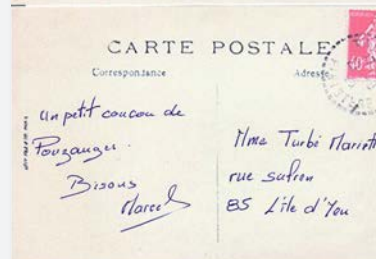 CARTE POSTALE
Correspondance
Adresse
un petit coucou de
Pouzauges.
Bisous
Marcel
Mme Turbé Mariett
rue sufren
85 L'ile d'Yeu
40